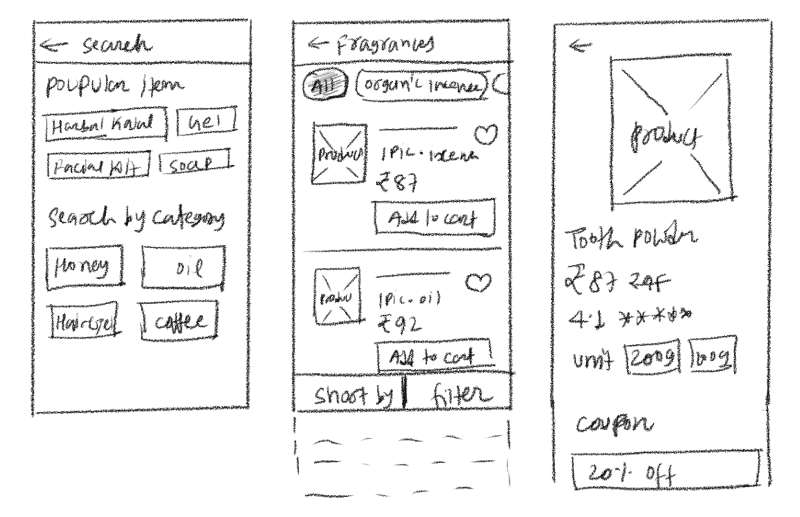 ← Search
Poupular Item
Harbal Kajal
Gel
Facial Kit
Soap
Search by category
Honey
Oil
Hair Gel
Coffee
← Fragrances
All
Organic Incense
Product
1 Pic.
₹87
Add to cart
Product
1 Pic. oil
₹92
Add to cart
Short by
filter
←
Product
Tooth Powder
₹87
4.1 *****
Unit 200g 100g
Coupon
20% Off